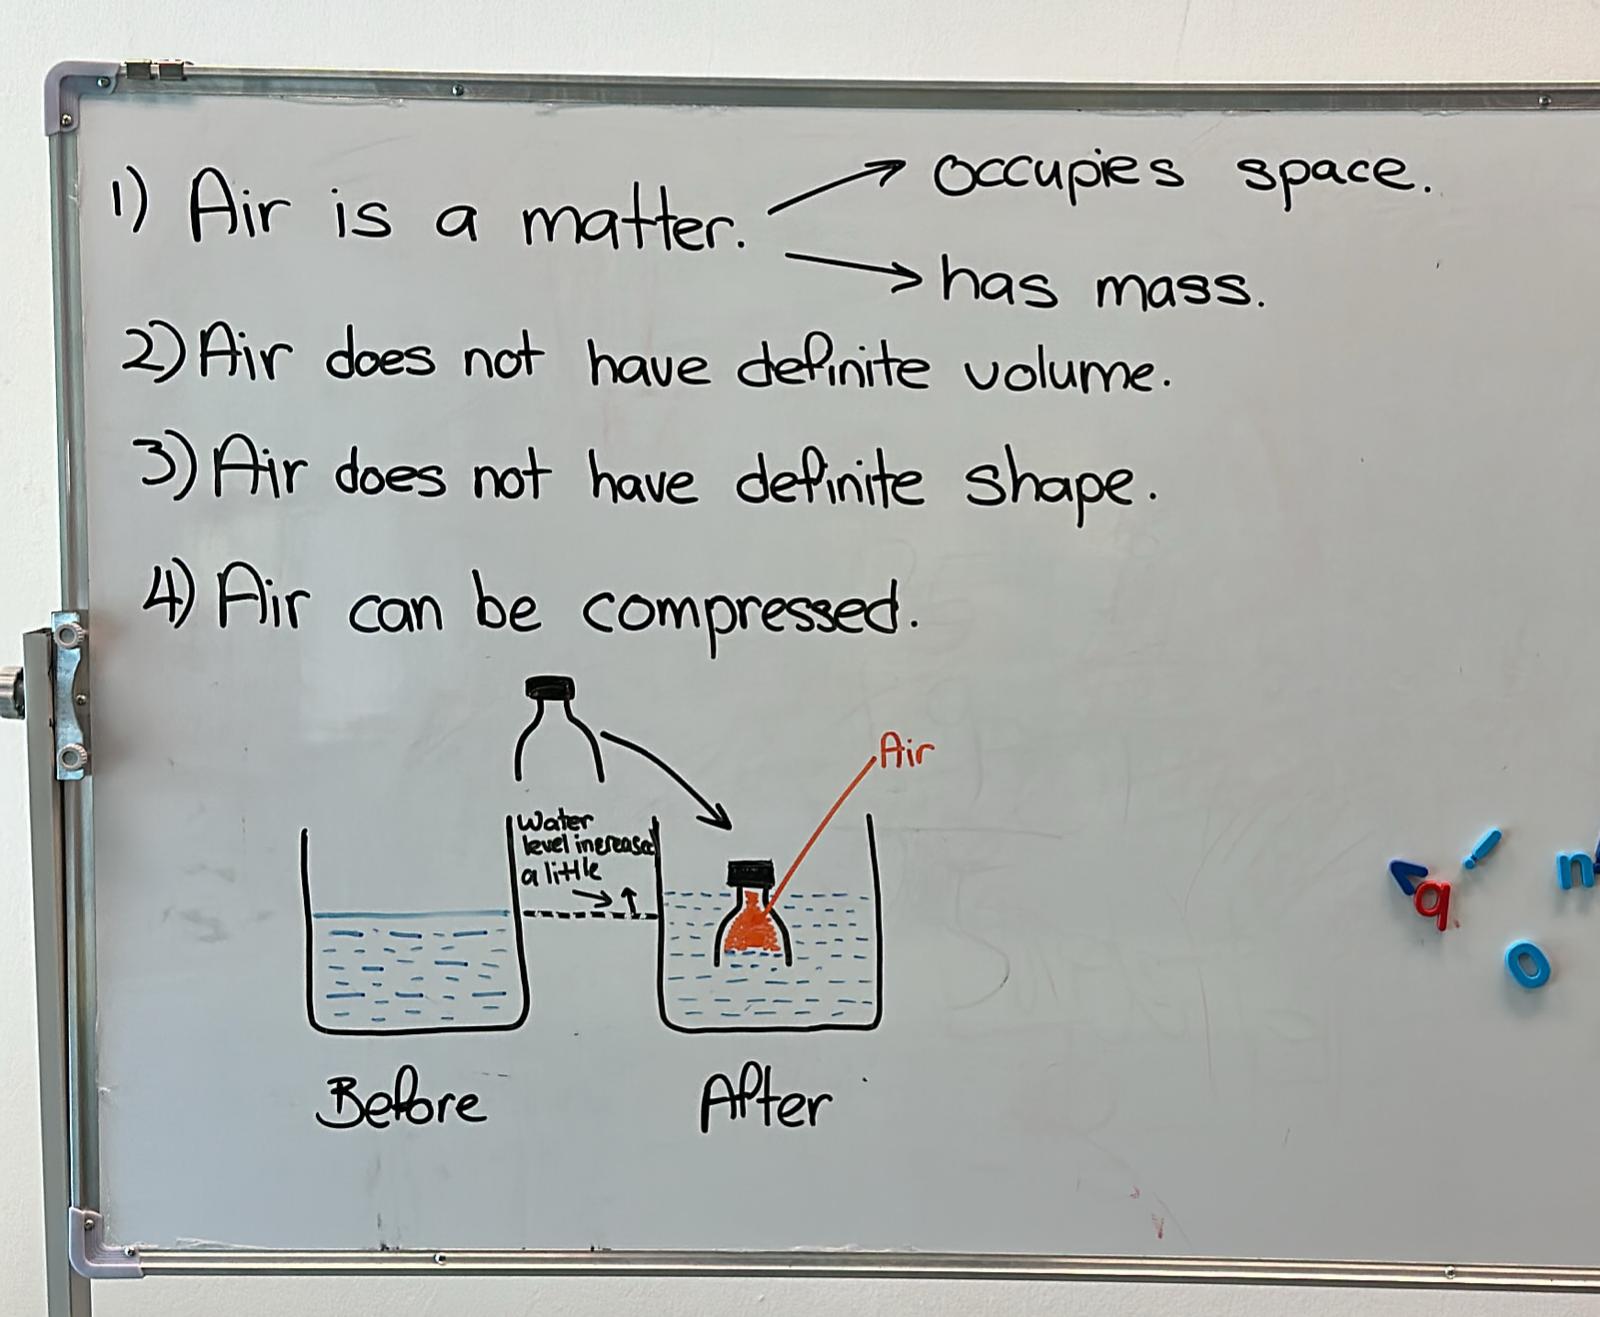 1) Air is a matter. → occupies space.
→ has mass.
2) Air does not have definite volume.
3) Air does not have definite shape.
4) Air can be compressed.
Air
Water
level increased
a little
Before
After
q
n
o